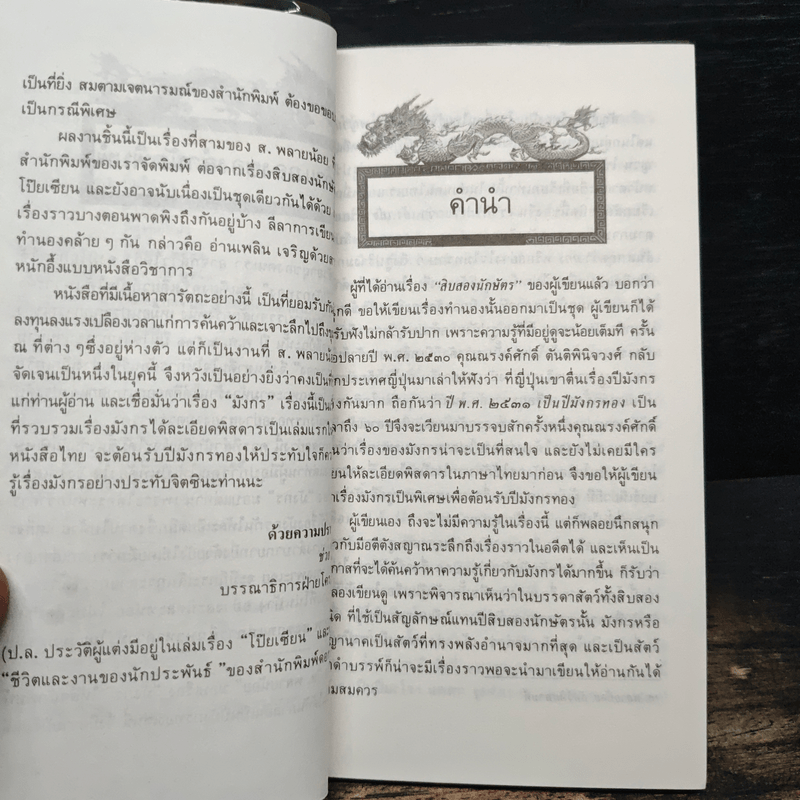 เป็นที่ยิ่ง สมตามเจตนารมณ์ของสำนักพิมพ์ ต้องขอขอบ
เป็นกรณีพิเศษ
ผลงานชิ้นนี้เป็นเรื่องที่สามของ ส. พลายน้อย
สำนักพิมพ์ของเราจัดพิมพ์ ต่อจากเรื่องสิบสองนักษั
โป๊ยเซียน และยังอาจนับเนื่องเป็นชุดเดียวกันได้ด้วย
เรื่องราวบางตอนพาดพิงถึงกันอยู่บ้าง ลีลาการเขียน
ทำนองคล้าย ๆ กัน กล่าวคือ อ่านเพลิน เจริญด้วยส
หนักอึ้งแบบหนังสือวิชาการ
หนังสือที่มีเนื้อหาสารัตถะอย่างนี้ เป็นที่ยอมรับกัน
ลงทุนลงแรงเปลืองเวลาแก่การค้นคว้าและเจาะลึกไปถึง
ณ ที่ต่าง ๆซึ่งอยู่ห่างตัว แต่ก็เป็นงานที่ ส. พลายน้อ
จัดเจนเป็นหนึ่งในยุคนี้ จึงหวังเป็นอย่างยิ่งว่าคงเป็นที่
แก่ท่านผู้อ่าน และเชื่อมั่นว่าเรื่อง “มังกร” เรื่องนี้เป็น
ที่รวบรวมเรื่องมังกรได้ละเอียดพิสดารเป็นเล่มแรกใ
หนังสือไทย จะต้องรับปีมังกรทองให้ประทับใจก็
รู้เรื่องมังกรอย่างประทับจิตซินะท่านนะ
ด้วยความปร
ช่ว
บรรณาธิการฝ่ายโค
(ป.ล. ประวัติผู้แต่งมีอยู่ในเล่มเรื่อง “โป๊ยเซียน” และ
“ชีวิตและงานของนักประพันธ์ ”ของสำนักพิมพ์
คำนำ
ผู้ที่ได้อ่านเรื่อง “สิบสองนักษัตร” ของผู้เขียนแล้ว บอกว่า
กดี ขอให้เขียนเรื่องทำนองนั้นออกมาเป็นชุด ผู้เขียนก็ได้
รับฟังไม่กล้ารับปาก เพราะความรู้ที่มีอยู่ดูจะน้อยเต็มที ครั้น
ปลายปี พ.ศ. ๒๕๓๐ คุณณรงค์ศักดิ์ ตันติพินิจวงศ์ กลับ
กประเทศญี่ปุ่นมาเล่าให้ฟังว่า ที่ญี่ปุ่นเขาตื่นเรื่องปีมังกร
งกันมาก ถือกันว่า ปี พ.ศ. ๒๕๓๑ เป็นปีมังกรทอง เป็น
ลาถึง ๖๐ ปีจึงจะเวียนมาบรรจบสักครั้งหนึ่งคุณณรงค์ศักดิ์
นว่าเรื่องของมังกรน่าจะเป็นที่สนใจ และยังไม่เคยมีใคร
ยนให้ละเอียดพิสดารในภาษาไทยมาก่อน จึงขอให้ผู้เขียน
าเรื่องมังกรเป็นพิเศษเพื่อต้อนรับปีมังกรทอง
ผู้เขียนเอง ถึงจะไม่มีความรู้ในเรื่องนี้ แต่ก็พลอยนึกสนุก
วกับมีอดีตังสญาณระลึกถึงเรื่องราวในอดีตได้ และเห็นเป็น
กาสที่จะได้ค้นคว้าหาความรู้เกี่ยวกับมังกรได้มากขึ้น ก็รับว่า
ลองเขียนดู เพราะพิจารณาเห็นว่าในบรรดาสัตว์ทั้งสิบสอง
นิด ที่ใช้เป็นสัญลักษณ์แทนปีสิบสองนักษัตรนั้น มังกรหรือ
ญานาคเป็นสัตว์ที่ทรงพลังอำนาจมากที่สุด และเป็นสัตว์
าดำบรรพ์ก็น่าจะมีเรื่องราวพอจะนำมาเขียนให้อ่านกันได้
มสมควร